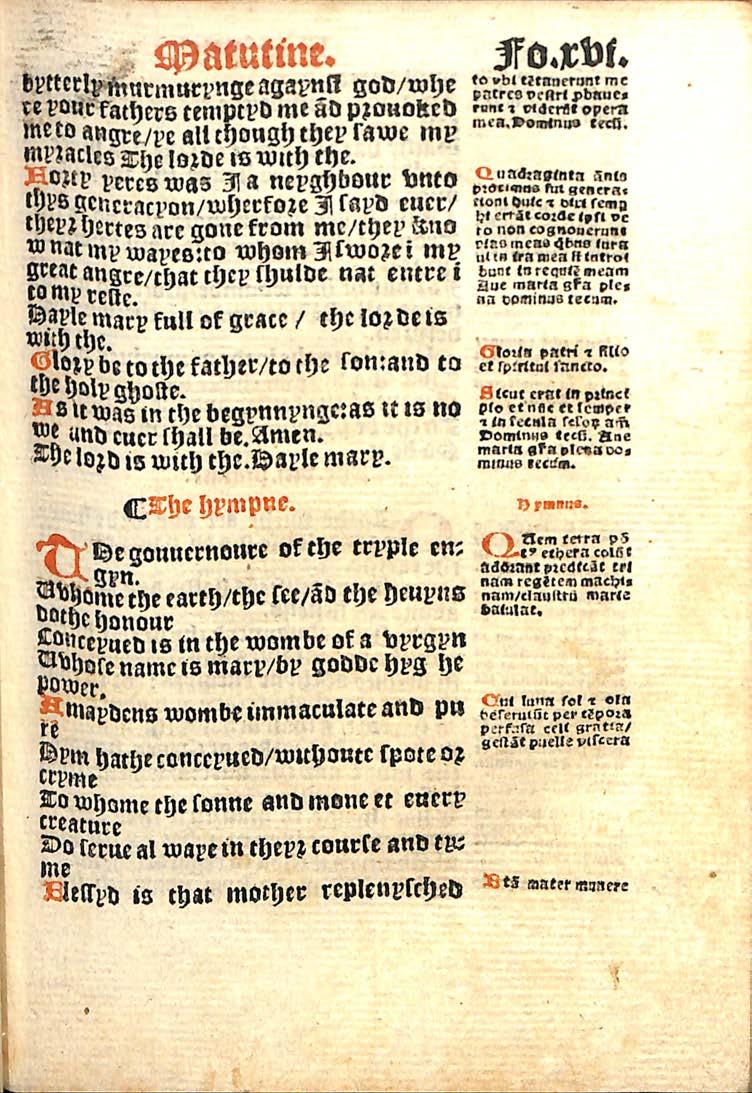 Matutine.
Fo.xvi.
bytterly murmurynge agaynst god/whe
re your fathers temptyd me ãd prouoked
me to angre/ye all though they sawe my
myracles The lorde is with the.
Forty yeres was I a neyghbour vnto
thys generacyon/wherfore I sayd euer/
theyr hertes are gone from me/they kno
w nat my wayes:to whom I swore i my
great angre/that they shulde nat entre i
to my reste.
Hayle mary full of grace / the lorde is
with the.
Glory be to the father/to the son:and to
the holy ghoste.
As it was in the begynnynge:as it is no
we and euer shall be. Amen.
The lord is with the. Hayle mary.
¶The hympne.
THe gouuernoure of the tryple en:
gyn.
Whome the earth/the see/ãd the heuyns
dothe honour
Conceyued is in the wombe of a vyrgyn
Whose name is mary/by godde hyg he
power.
A maydens wombe immaculate and pu
re
Hym hathe conceyued/withoute spote or
cryme
To whome the sonne and mone et euery
creature
Do serue al waye in theyr course and ty:
me
Blessyd is that mother replenysched
to vbi tẽtanerunt me
patres vestri pbaue:
runt ⁊ viderũt opera
mea. Dominus tecũ.
Quadraginta ãnis
proximus fui genera:
tioni huic ⁊ dixi semp
hi errãt corde ipsi ve
ro non cognouerunt
vias meas qbus iura
ui in ira mea si introi
bunt in requiẽ meam
Aue maria gr̃a ple:
na dominus tecum.
Gloria patri ⁊ filio
et spiritui sancto.
Sicut erat in princi
pio et nũc et semper
⁊ in secula seloꝝ am̃
Dominus tecũ. Aue
maria gr̃a plena do:
minus tecum.
Hymnus.
QUem terra põ
t⁹ ethera colũt
adorant predicãt tri
nam regẽtem machi:
nam/claustrũ marie
baiulat.
Cui luna sol ⁊ oĩa
deseruiũt per tẽpora
perfusa celi gratia/
gestãt puelle viscera
Btã mater munere